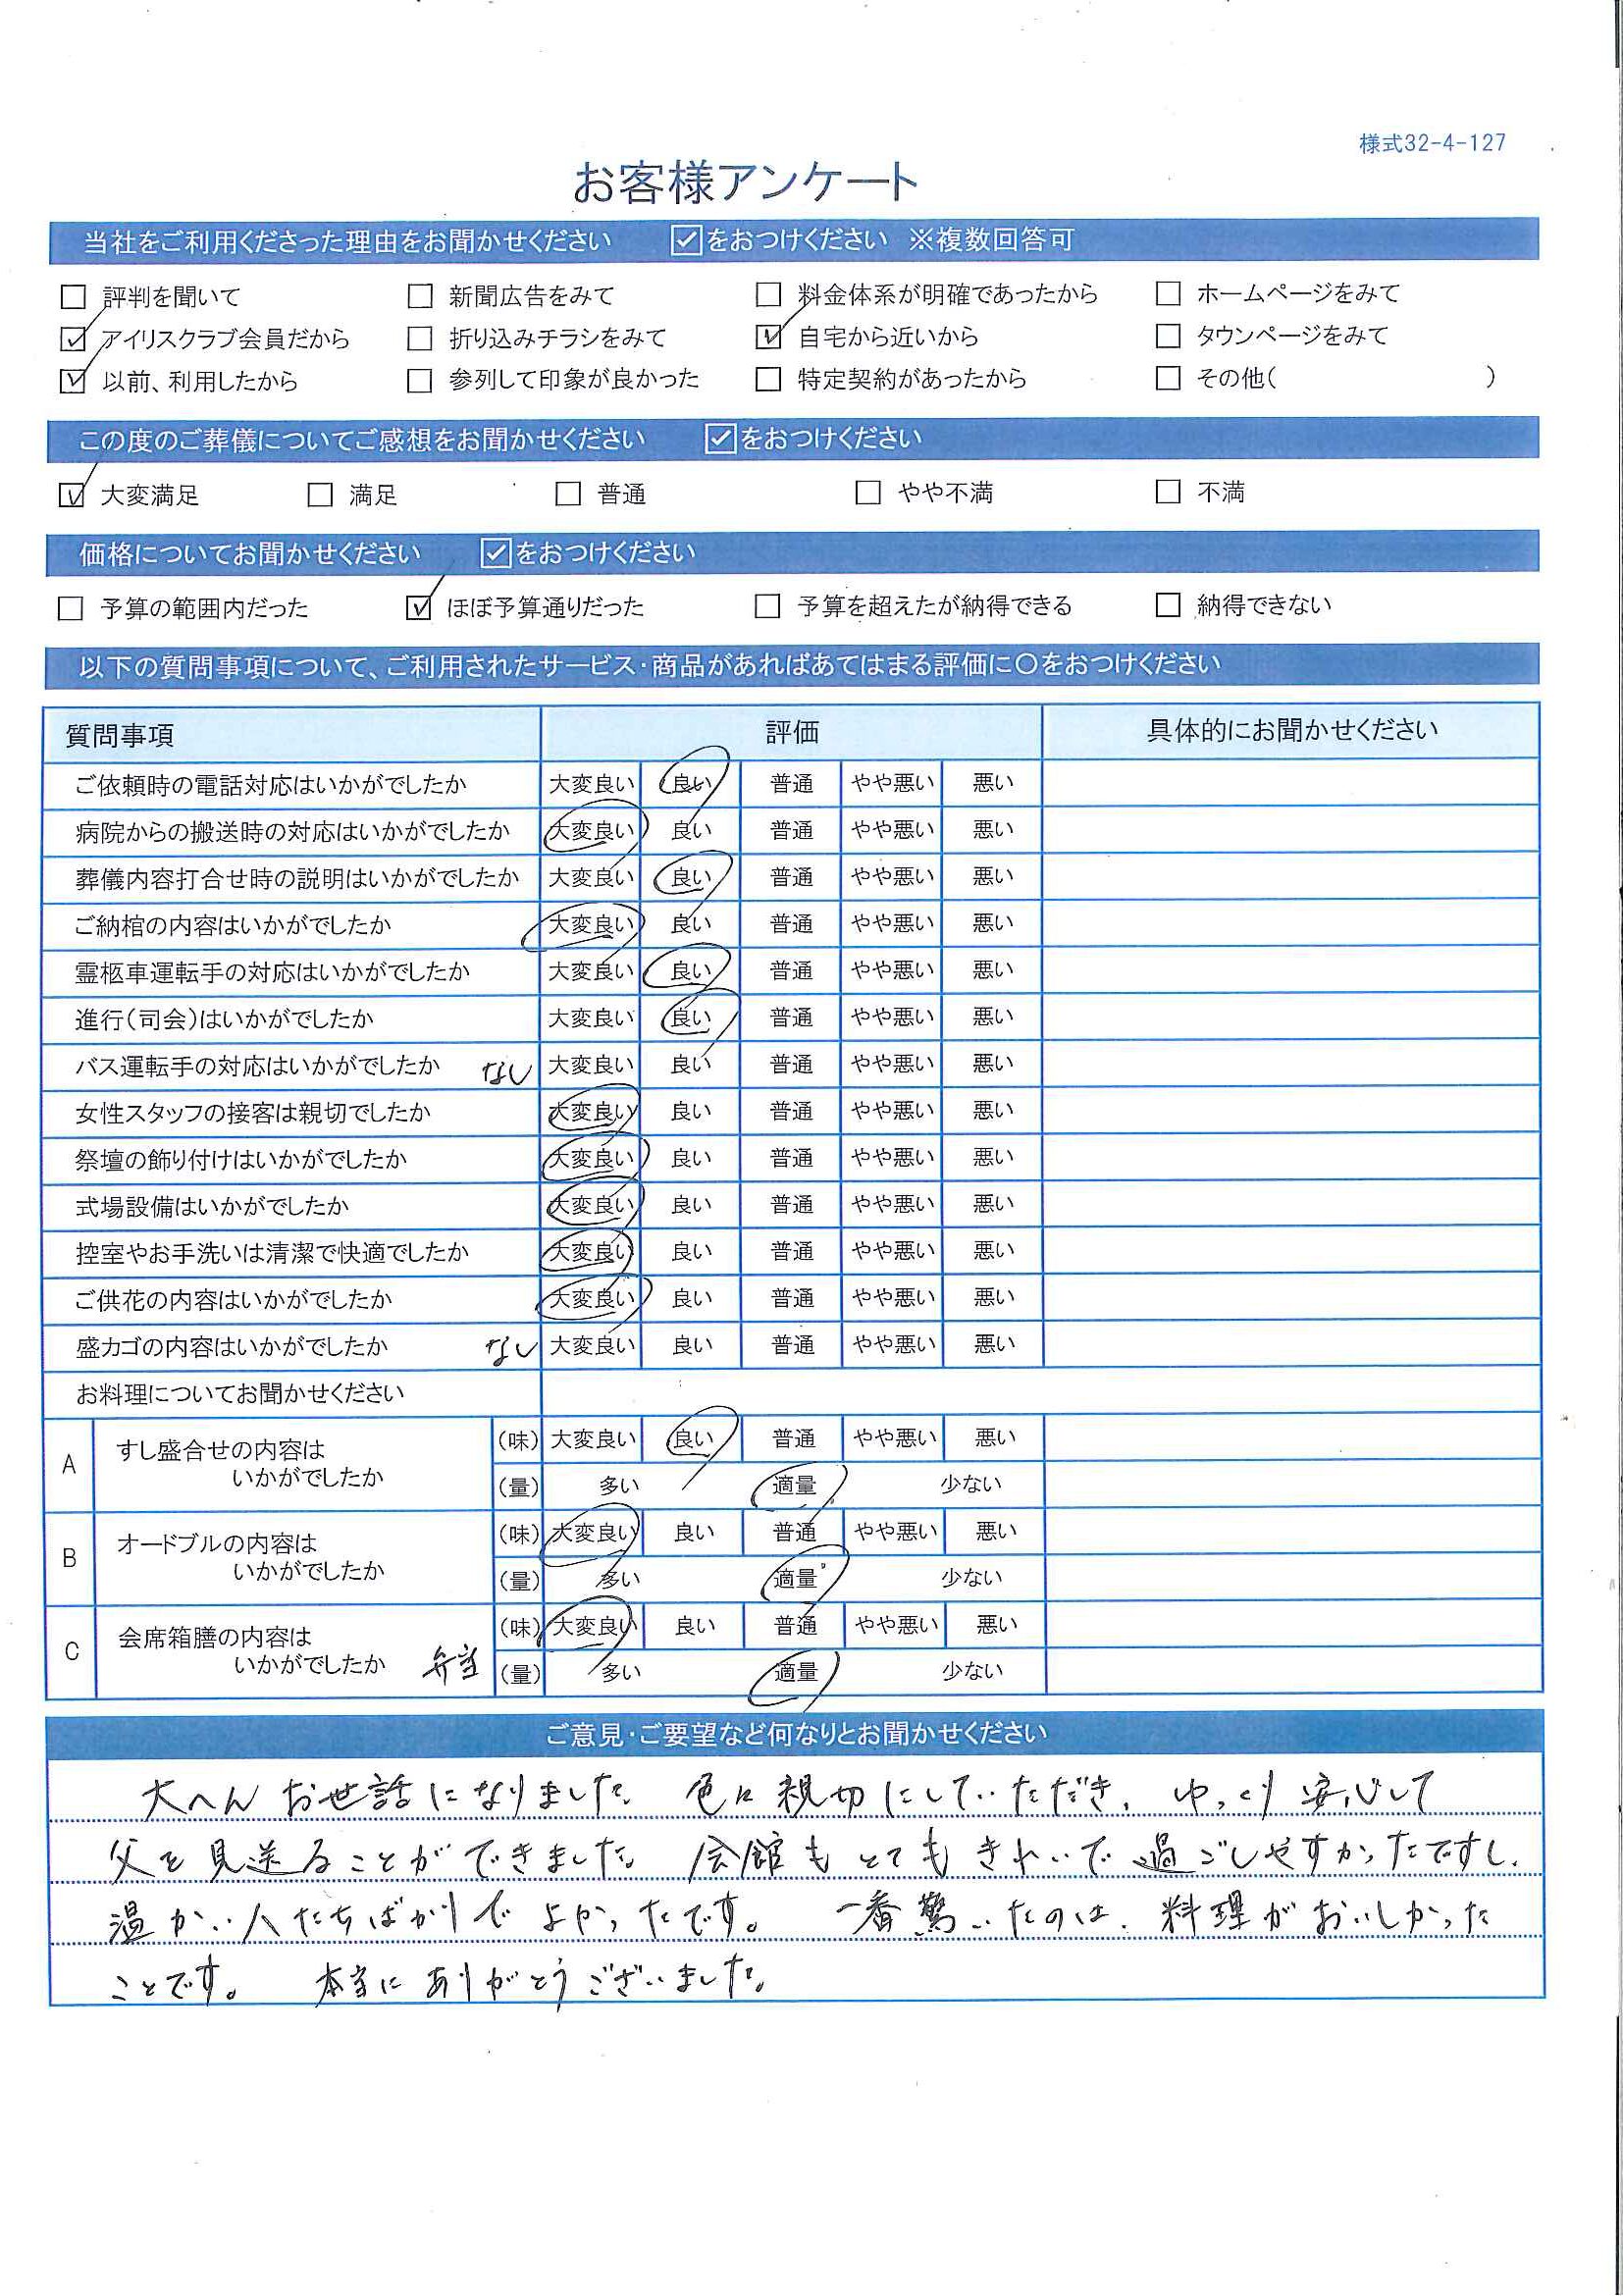 様式32-4-127
お客様アンケート
当社をご利用くださった理由をお聞かせください ☑をおつけください ※複数回答可
□ 評判を聞いて □ 新聞広告をみて □ 料金体系が明確であったから □ ホームページをみて
☑ アイリスクラブ会員だから □ 折り込みチラシをみて ☑ 自宅から近いから □ タウンページをみて
☑ 以前、利用したから □ 参列して印象が良かった □ 特定契約があったから □ その他( )
この度のご葬儀についてご感想をお聞かせください ☑をおつけください
☑ 大変満足 □ 満足 □ 普通 □ やや不満 □ 不満
価格についてお聞かせください ☑をおつけください
□ 予算の範囲内だった ☑ ほぼ予算通りだった □ 予算を超えたが納得できる □ 納得できない
以下の質問事項について、ご利用されたサービス・商品があればあてはまる評価に○をおつけください
質問事項 評価 具体的にお聞かせください
ご依頼時の電話対応はいかがでしたか 大変良い 良い 普通 やや悪い 悪い
病院からの搬送時の対応はいかがでしたか 大変良い 良い 普通 やや悪い 悪い
葬儀内容打合せ時の説明はいかがでしたか 大変良い 良い 普通 やや悪い 悪い
ご納棺の内容はいかがでしたか 大変良い 良い 普通 やや悪い 悪い
霊柩車運転手の対応はいかがでしたか 大変良い 良い 普通 やや悪い 悪い
進行(司会)はいかがでしたか 大変良い 良い 普通 やや悪い 悪い
バス運転手の対応はいかがでしたか なし 大変良い 良い 普通 やや悪い 悪い
女性スタッフの接客は親切でしたか 大変良い 良い 普通 やや悪い 悪い
祭壇の飾り付けはいかがでしたか 大変良い 良い 普通 やや悪い 悪い
式場設備はいかがでしたか 大変良い 良い 普通 やや悪い 悪い
控室やお手洗いは清潔で快適でしたか 大変良い 良い 普通 やや悪い 悪い
ご供花の内容はいかがでしたか 大変良い 良い 普通 やや悪い 悪い
盛カゴの内容はいかがでしたか なし 大変良い 良い 普通 やや悪い 悪い
お料理についてお聞かせください
A すし盛合せの内容は (味) 大変良い 良い 普通 やや悪い 悪い
いかがでしたか (量) 多い 適量 少ない
B オードブルの内容は (味) 大変良い 良い 普通 やや悪い 悪い
いかがでしたか (量) 多い 適量 少ない
C 会席箱膳の内容は (味) 大変良い 良い 普通 やや悪い 悪い
いかがでしたか 弁当 (量) 多い 適量 少ない
ご意見・ご要望など何なりとお聞かせください
大へんお世話になりました。色々親切にしていただき、ゆっくり安心して
父を見送ることができました。会館もとてもきれいで過ごしやすかったですし、
温かい人たちばかりでよかったです。一番驚いたのは、料理がおいしかった
ことです。本当にありがとうございました。